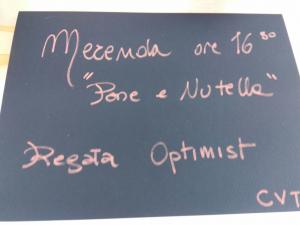 Merenda ore 16³⁰
"Pane e Nutella"
Regata Optimist
CVT